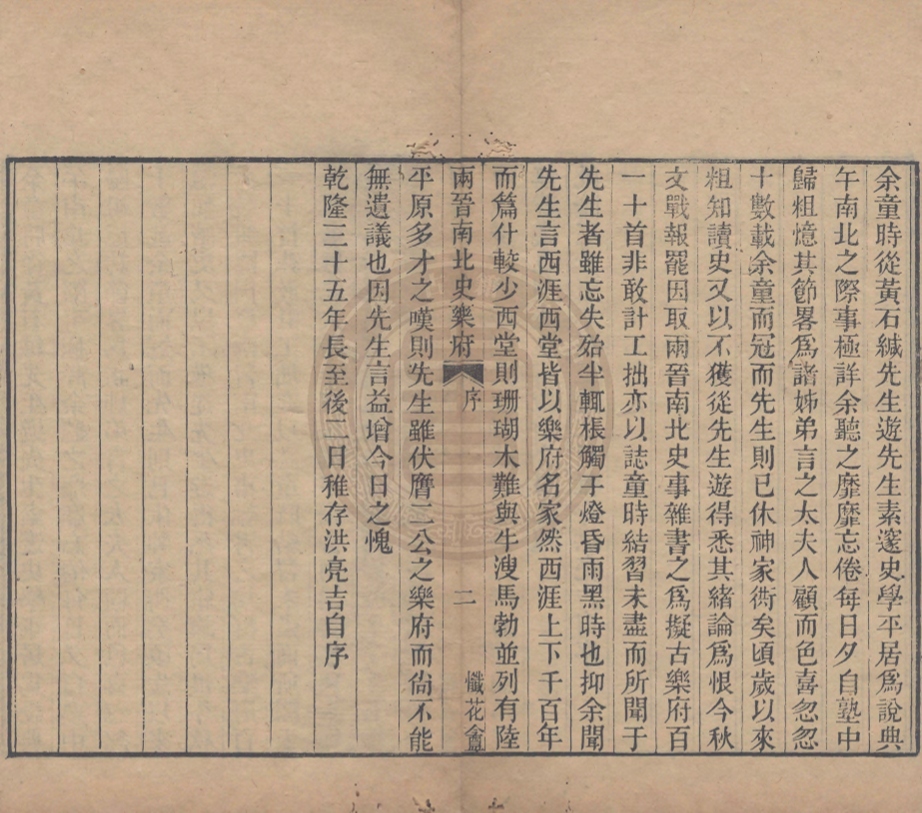 余童時從黃石緘先生遊先生素邃史學平居爲說典
午南北之際事極詳余聽之靡靡忘倦每日夕自塾中
歸粗憶其節畧爲諸姊弟言之太夫人顧而色喜忽忽
十數載余童而冠而先生則已休神家衖矣頃歲以來
粗知讀史又以不獲從先生遊得悉其緒論爲恨今秋
文戰報罷因取兩晉南北史事雜書之爲擬古樂府百
一十首非敢計工拙亦以誌童時結習未盡而所聞于
先生者雖忘失殆半輒棖觸于燈昏雨黑時也抑余聞
先生言西涯西堂皆以樂府名家然西涯上下千百年
而篇什較少西堂則珊瑚木難與牛溲馬勃並列有陸
兩晉南北史樂府 序 二 懺花盦
平原多才之嘆則先生雖伏膺二公之樂府而尙不能
無遺議也因先生言益增今日之愧
乾隆三十五年長至後二日稚存洪亮吉自序